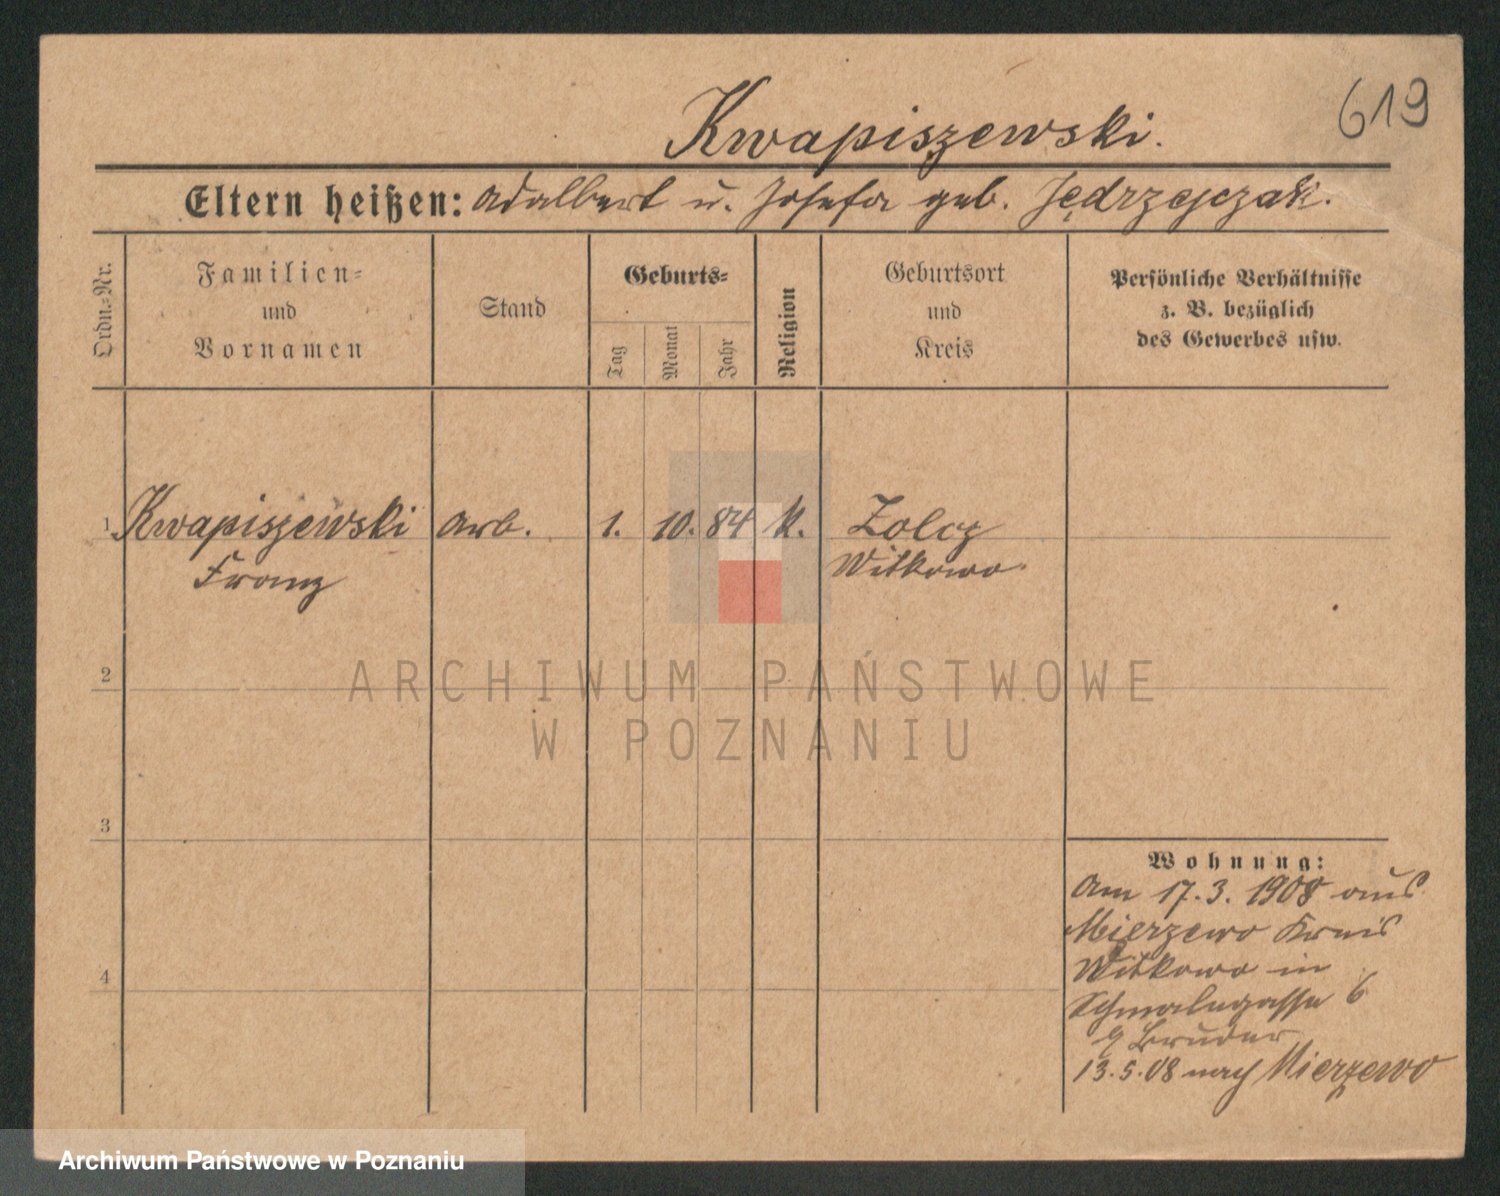 619
Kwapiszewski.
Eltern heißen: Adalbert u. Josefa geb. Jędrzejczak.
Ordn.-Nr.
Familien-
und
Vornamen
Stand
Geburts-
Tag
Monat
Jahr
Religion
Geburtsort
und
Kreis
Persönliche Verhältnisse
z. B. bezüglich
des Gewerbes usw.
1 Kwapiszewski Arb. 1. 10. 84 K. Zolcz
Franz Witkowo
2
ARCHIWUM PAŃSTWOWE
W POZNANIU
3
Wohnung:
Am 17.3. 1908 aus
Mierzewo Kreis
Witkowo in
Schmalegasse 6
Bruder
4
13.5.08 nach Mierzewo
Archiwum Państwowe w Poznaniu